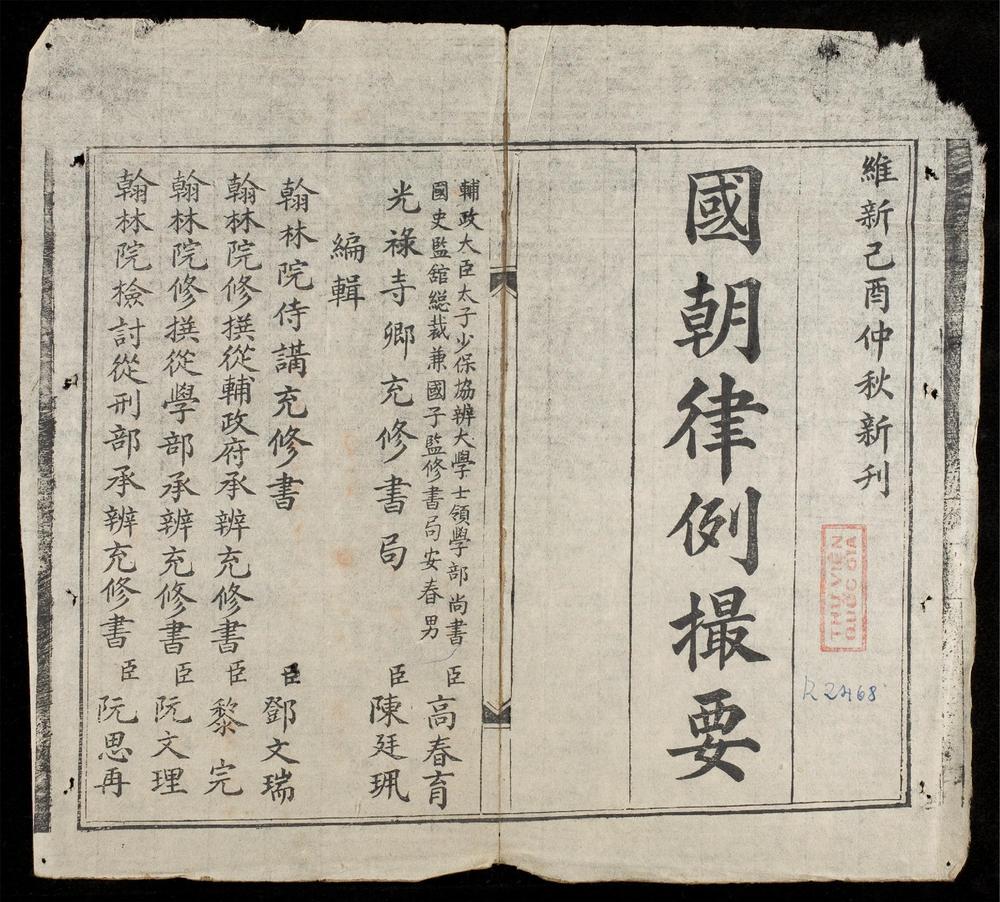 維新己酉仲秋新刊
國朝律例撮要
THƯ VIỆN
QUỐC GIA
R 2468
輔政大臣太子少保協辨大學士領學部尚書
國史監舘緫裁兼國子監修書局安春男臣高春育
光祿寺卿充修書局臣陳廷珮
編輯
翰林院侍講充修書臣鄧文瑞
翰林院修撰從輔政府承辨充修書臣黎完
翰林院修撰從學部承辨充修書臣阮文理
翰林院檢討從刑部承辨充修書臣阮思再